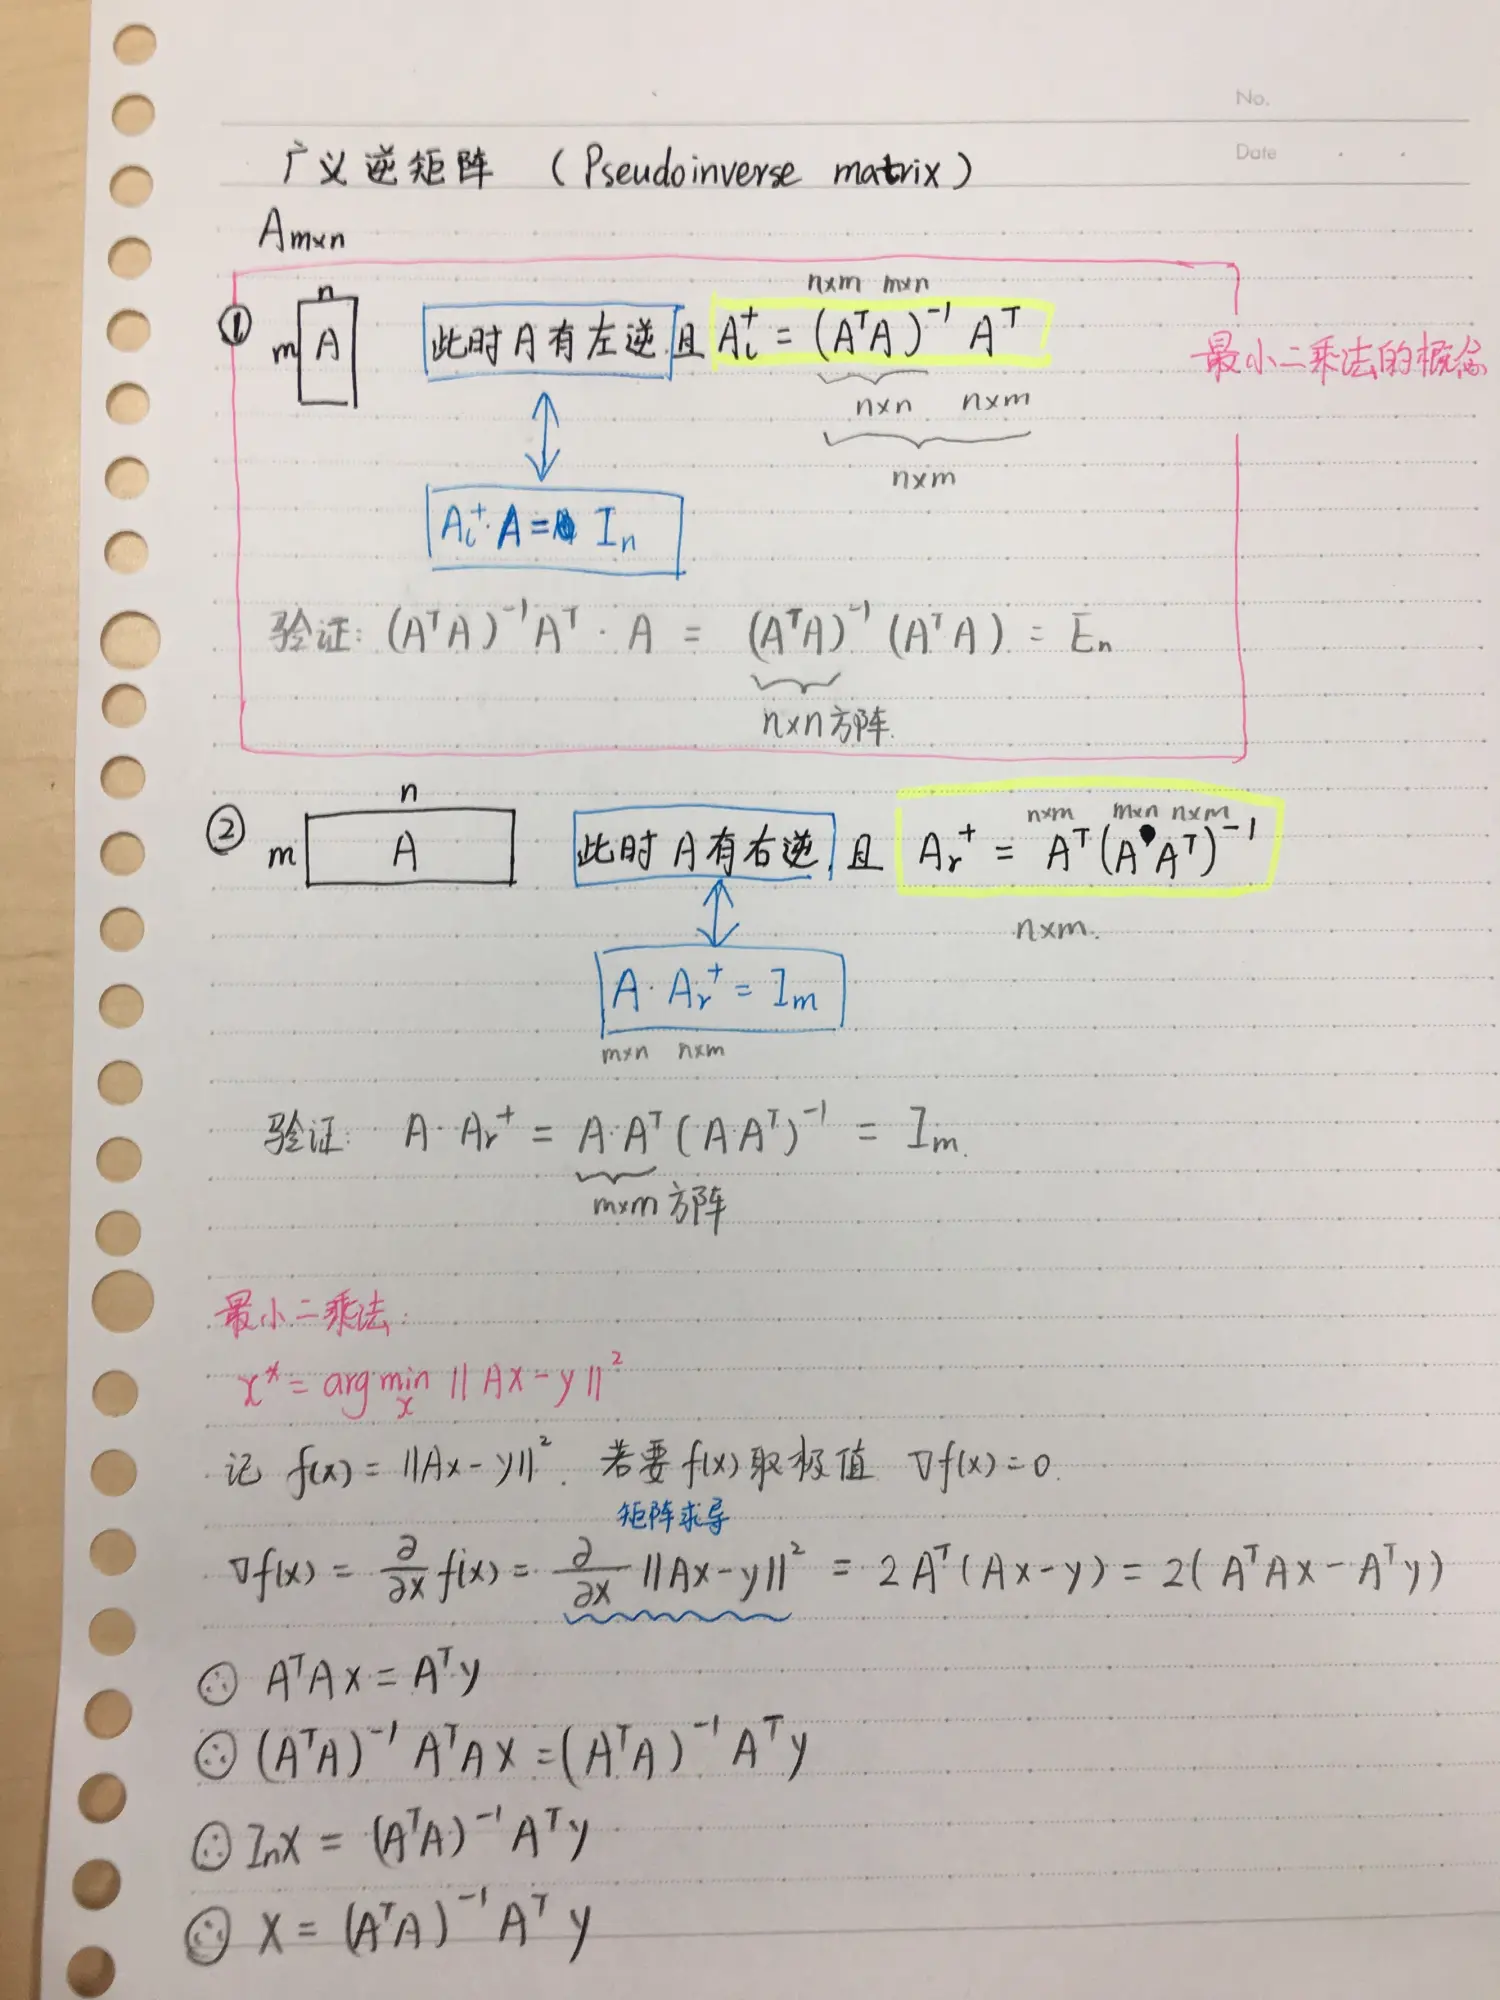 No.
Date
广义逆矩阵 (Pseudoinverse matrix)
Am×n
n×m m×n
① n m A 此时A有左逆 且 Al⁺ = (AᵀA)⁻¹ Aᵀ
最小二乘法的概念
n×n n×m
n×m
Al⁺·A = In
验证: (AᵀA)⁻¹Aᵀ · A = (AᵀA)⁻¹ (AᵀA) = En
n×n方阵.
n
n×m m×n n×m
② m A 此时A有右逆 且 Ar⁺ = Aᵀ(A·Aᵀ)⁻¹
n×m.
A·Ar⁺ = Im
m×n n×m
验证: A·Ar⁺ = A·Aᵀ(A·Aᵀ)⁻¹ = Im.
m×m方阵
最小二乘法:
x* = arg min ‖Ax-y‖²
x
记 f(x) = ‖Ax-y‖². 若要f(x)取极值 ∇f(x)=0.
矩阵求导
∇f(x) = ∂/∂x f(x) = ∂/∂x ‖Ax-y‖² = 2Aᵀ(Ax-y) = 2(AᵀAx-Aᵀy)
∴ AᵀAx = Aᵀy
∴ (AᵀA)⁻¹AᵀAx = (AᵀA)⁻¹Aᵀy
∴ Inx = (AᵀA)⁻¹Aᵀy
∴ x = (AᵀA)⁻¹Aᵀy